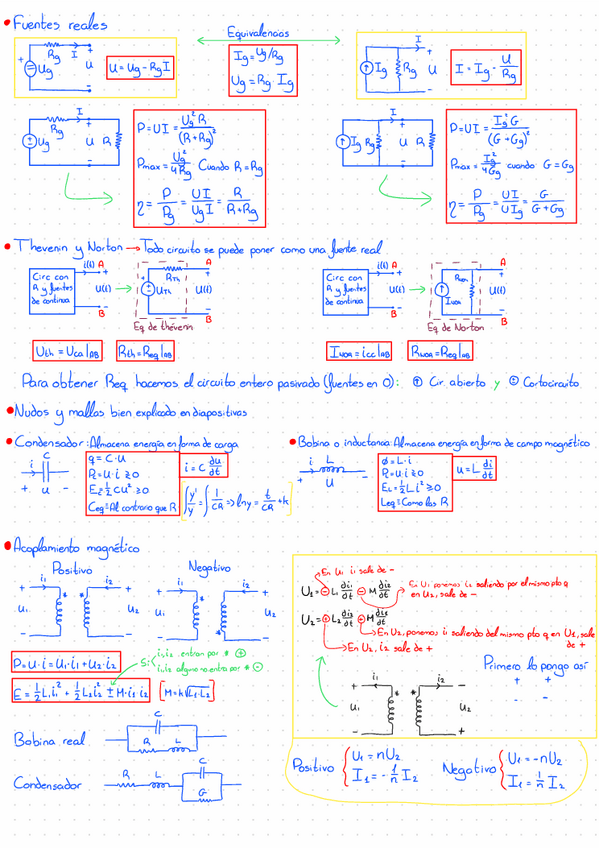 • Fuentes reales
Equivalencias
+ Ug Rg I + U -
U = Ug - Rg I
Ig = Ug/Rg
Ug = Rg Ig
Ig Rg I + U -
I = Ig - U/Rg
+ Ug Rg I + U R -
P = UI = Ug² R/(R+Rg)²
Pmax = Ug²/4Rg Cuando R = Rg
η = P/Pg = UI/UgI = R/R+Rg
Ig Rg I + U R -
P = UI = Ig² G/(G+Gg)²
Pmax = Ig²/4Gg cuando G = Gg
η = P/Pg = UI/UIg = G/G+Gg
• Thevenin y Norton → Todo circuito se puede poner como una fuente real
Circ con R y fuentes de continua i(t) A + U(t) - B
RTh UTh A + U(t) - B
Eq de thévenin
Circ con R y fuentes de continua i(t) A + U(t) - B
INOR A + U(t) - B
Eq de Norton
Uth = Uca|AB
Rth = Req|AB
INOR = icc|AB
RNOR = Req|AB
Para obtener Req hacemos el circuito entero pasivado (fuentes en 0): Cir. abierto y Cortocircuito
• Nudos y mallas bien explicado en diapositivas
• Condensador: Almacena energía en forma de carga
i C + u -
q = C·U
Pc = U·i ≷ 0
Ec = ½ C U² ≥ 0
Ceq = Al contrario que R
i = C du/dt
∫ y'/y = ∫ 1/CR => ln y = t/CR + k
• Bobina o inductancia: Almacena energía en forma de campo magnético
i L + u -
Φ = L·i
PL = U·i ≷ 0
EL = ½ L i² ≥ 0
Leq = Como las R
u = L di/dt
• Acoplamiento magnético
Positivo
Negativo
+ i1 U1 - * * i2 + U2 -
+ i1 U1 - * * i2 + U2 -
P = U·i = U1·i1 + U2·i2
Si: i1, i2 entran por * ⊕
i1, i2 alguno no entra por * ⊖
E = ½ L1 i1² + ½ L2 i2² ± M·i1·i2
[M = k√L1·L2]
Bobina real
C
R L
Condensador
R L C
G
En U1 i1 sale de -
U1 = ⊖ L1 di1/dt ⊖ M di2/dt
En U1 ponemos i2 saliendo por el mismo pto q en U2, sale de -
U2 = ⊕ L2 di2/dt ⊕ M di1/dt
En U2, ponemos i1 saliendo del mismo pto q en U1, sale de +
En U2, i2 sale de +
Primero lo pongo así
+ +
- -
+ i1 U1 - * * i2 - U2 +
Positivo { U1 = nU2
I1 = -1/n I2
Negativo { U1 = -nU2
I1 = 1/n I2